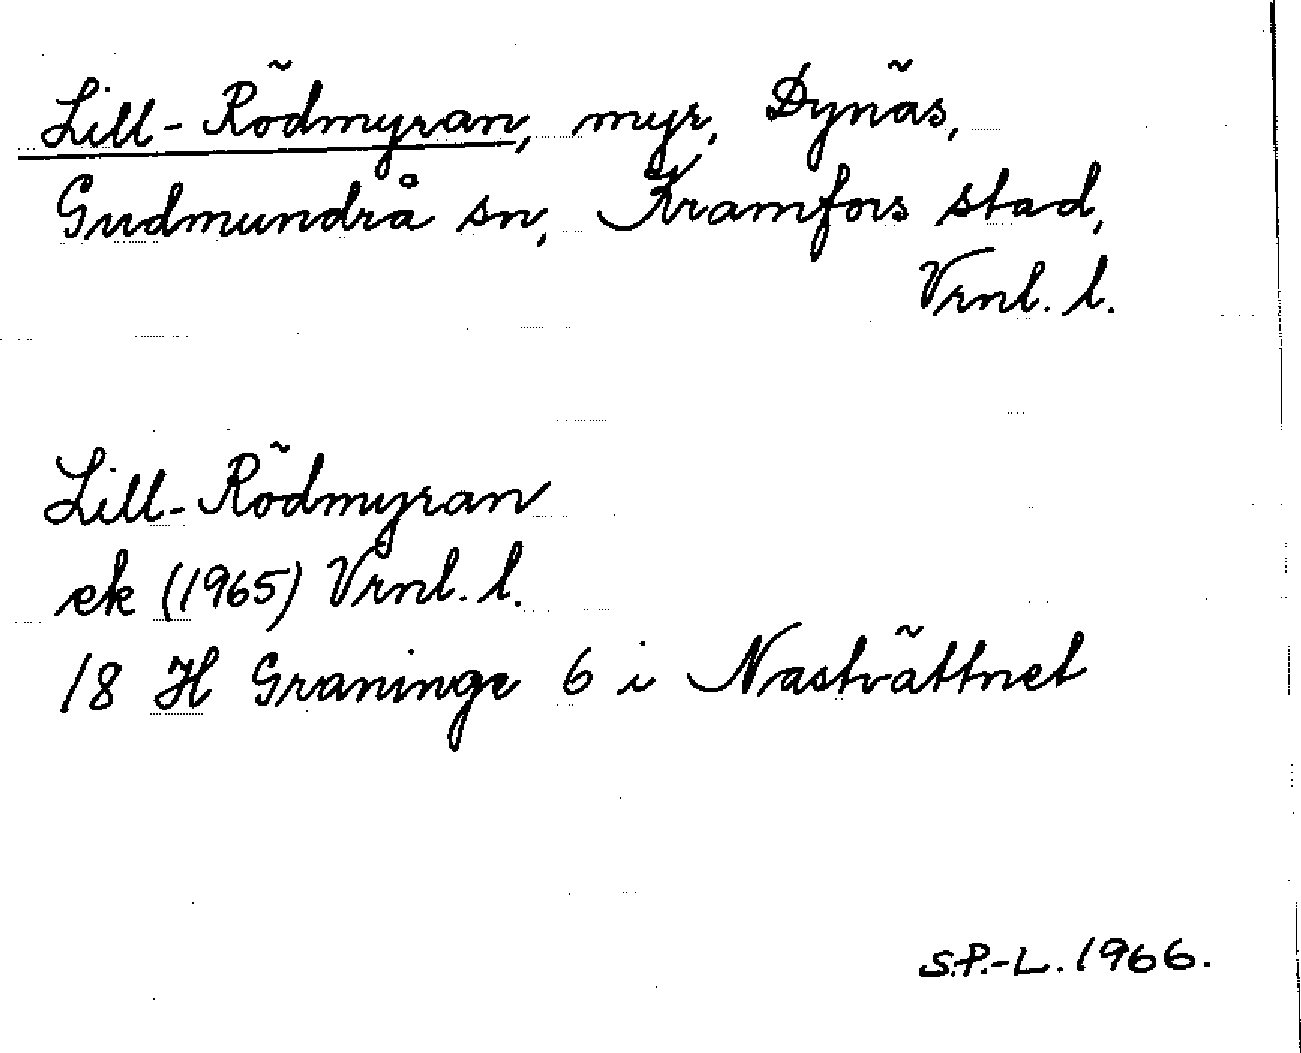 Lill-Rödmyran, myr, Dynäs,
Gudmundrå sn, Kramfors stad,
Vrnl. l.
Lill-Rödmyran
ek (1965) Vrnl. l.
18 H Graninge 6 i Nastvättnet
S.P.-L. 1966.